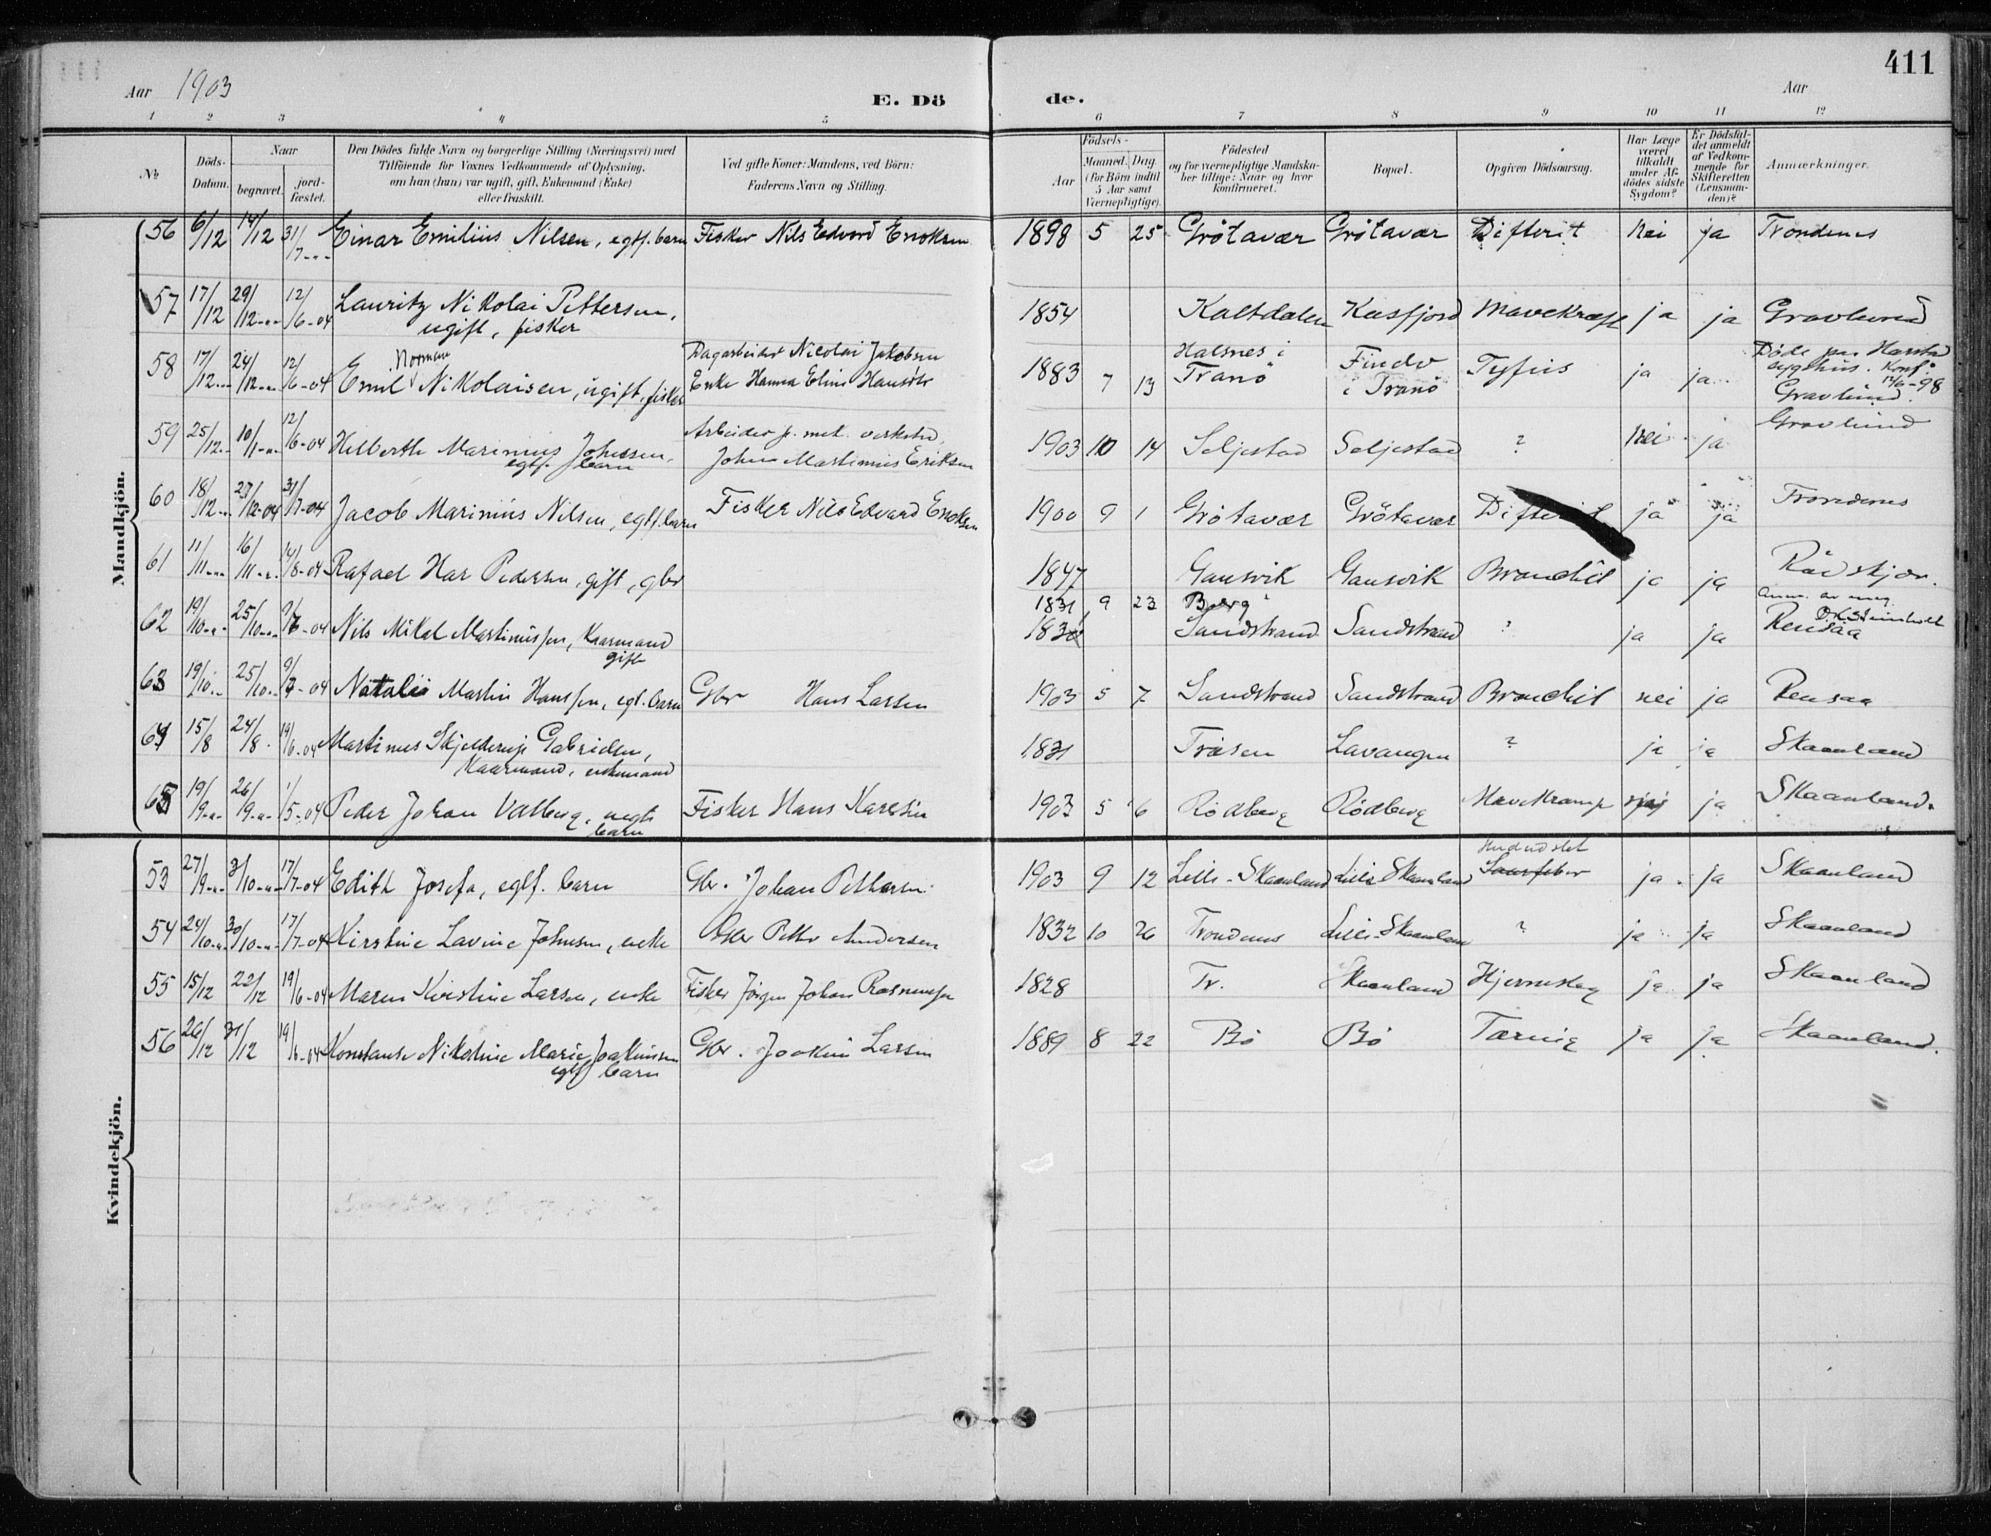 411
Aar 1903
E. Dö
de.
Aar
1 2 3 4 5 6 7 8 9 10 11 12
№
Döds-Datum.
Naar
begravet.
jord-fæstet.
Den Dödes fulde Navn og borgerlige Stilling (Næringsvei) med
Tilföiende for Voxnes Vedkommende af Oplysning,
om han (hun) var ugift, gift, Enkemand (Enke)
eller fraskilt.
Ved gifte Koner: Mandens, ved Börn:
Faderens Navn og Stilling.
Födsels-
Aar
Maaned. Dag
(for Börn indtil
5 Aar samt
Værnepligtige).
Födested
og for værnepligtige Mandska-
ber tillige: Naar og hvor
konfirmeret.
Bopæl.
Opgiven Dödsaarsag.
Har Læge
været
tilkaldt
under Af-
dödes sidste
Sygdom?
Er Dödsfal-
det anmeldt
af Vedkom-
mende for
Skifteretten
(Lensman-
den)?
Anmærkninger.
Mandkjön.
56 6/12 14/12 31/7 Einar Emilius Nilsen, egtf. barn Fisker Nils Edvard Enoksen 1898 5 25 Grötavær Grötavær Difterit Nei ja Trondenes
57 17/12 29/12 12/6-04 Lauritz Nikolai Pettersen, 1854 Kaltdalen Kasfjord Mavekræft ja ja Gravlund
ugift, fisker
58 17/12 24/12 12/6-04 Emil Norman Nikolaisen, ugift, fisker Dagarbeider Nicolai Jakobsen 1883 7 13 Halsnes i Tranö i Tranö Tyfus ja ja Döde paa Harstad
Enke Hanna Eline Hansdtr sygehus. Konf. -98
Gravlund.
59 25/12 10/1 12/6-04 Helberth Marinius Johnsen, Arbeider p. mek. verksted, 1903 10 14 Seljestad Seljestad ? Nei ja Gravlund
egtf. barn John Martinius Eriksen
60 18/12 27/12-04 31/7-04 Jacob Marinius Nilsen, egtf. barn Fisker Nils Edvard Enoksen 1900 9 1 Grötavær Grötavær Difterit ja ja Trondenes
61 11/11 16/11 14/8-04 Rafael Har Pedersen, gift, gbr 1847 Gausvik Gausvik Bronchit ja ja
62 19/10 25/10 Nils Mikal Martinussen, Kaarmand 1831 9 23 Berg
gift Sandstrand Sandstrand ? ja ja Rensaa
63 19/10 25/10 9/7-04 Natalie Martin Hanssen, egt. barn Gbr Hans Larsen 1903 5 7 Sandstrand Sandstrand Bronchit nei ja Rensaa
64 15/8 24/8 19/6-04 Martinus Skjelderup Gabrielsen, 1831 Tråsen Lavangen ? ja ja Skaanland
Kaarmand, enkemand
65 19/9 26/9 1/5-04 Peder Johan Valberg, uegte Fisker Hans Karesin 1903 5 6 Rödberg Rödberg Mavekrampe ja Skaanland
barn
Kvindekjön.
53 27/9 3/10 17/7-04 Edith Josefa, egtf. barn Gbr. Johan Pettersen 1903 9 12 Lille-Skaanland Lille Skaanland ja ja Skaanland
54 24/10 30/10 17/7-04 Kirstine Lavine Johnsen, enke Gbr Petter Andersen 1832 10 26 Trondenes Lille-Skaanland ? ja ja Skaanland
55 15/12 22/12 19/6-04 Maren Kirstine Larsen, enke Fisker Jörgen Johan Rasmussen 1828 Tr. Skaanland Hjerneslag ja ja Skaanland
56 26/12 31/12 19/6-04 Konstanse Nikoline Marie Joakimsen Gbr. Joakim Larsen 1889 8 22 Bö Bö Tæring ja ja Skaanland.
egtf barn